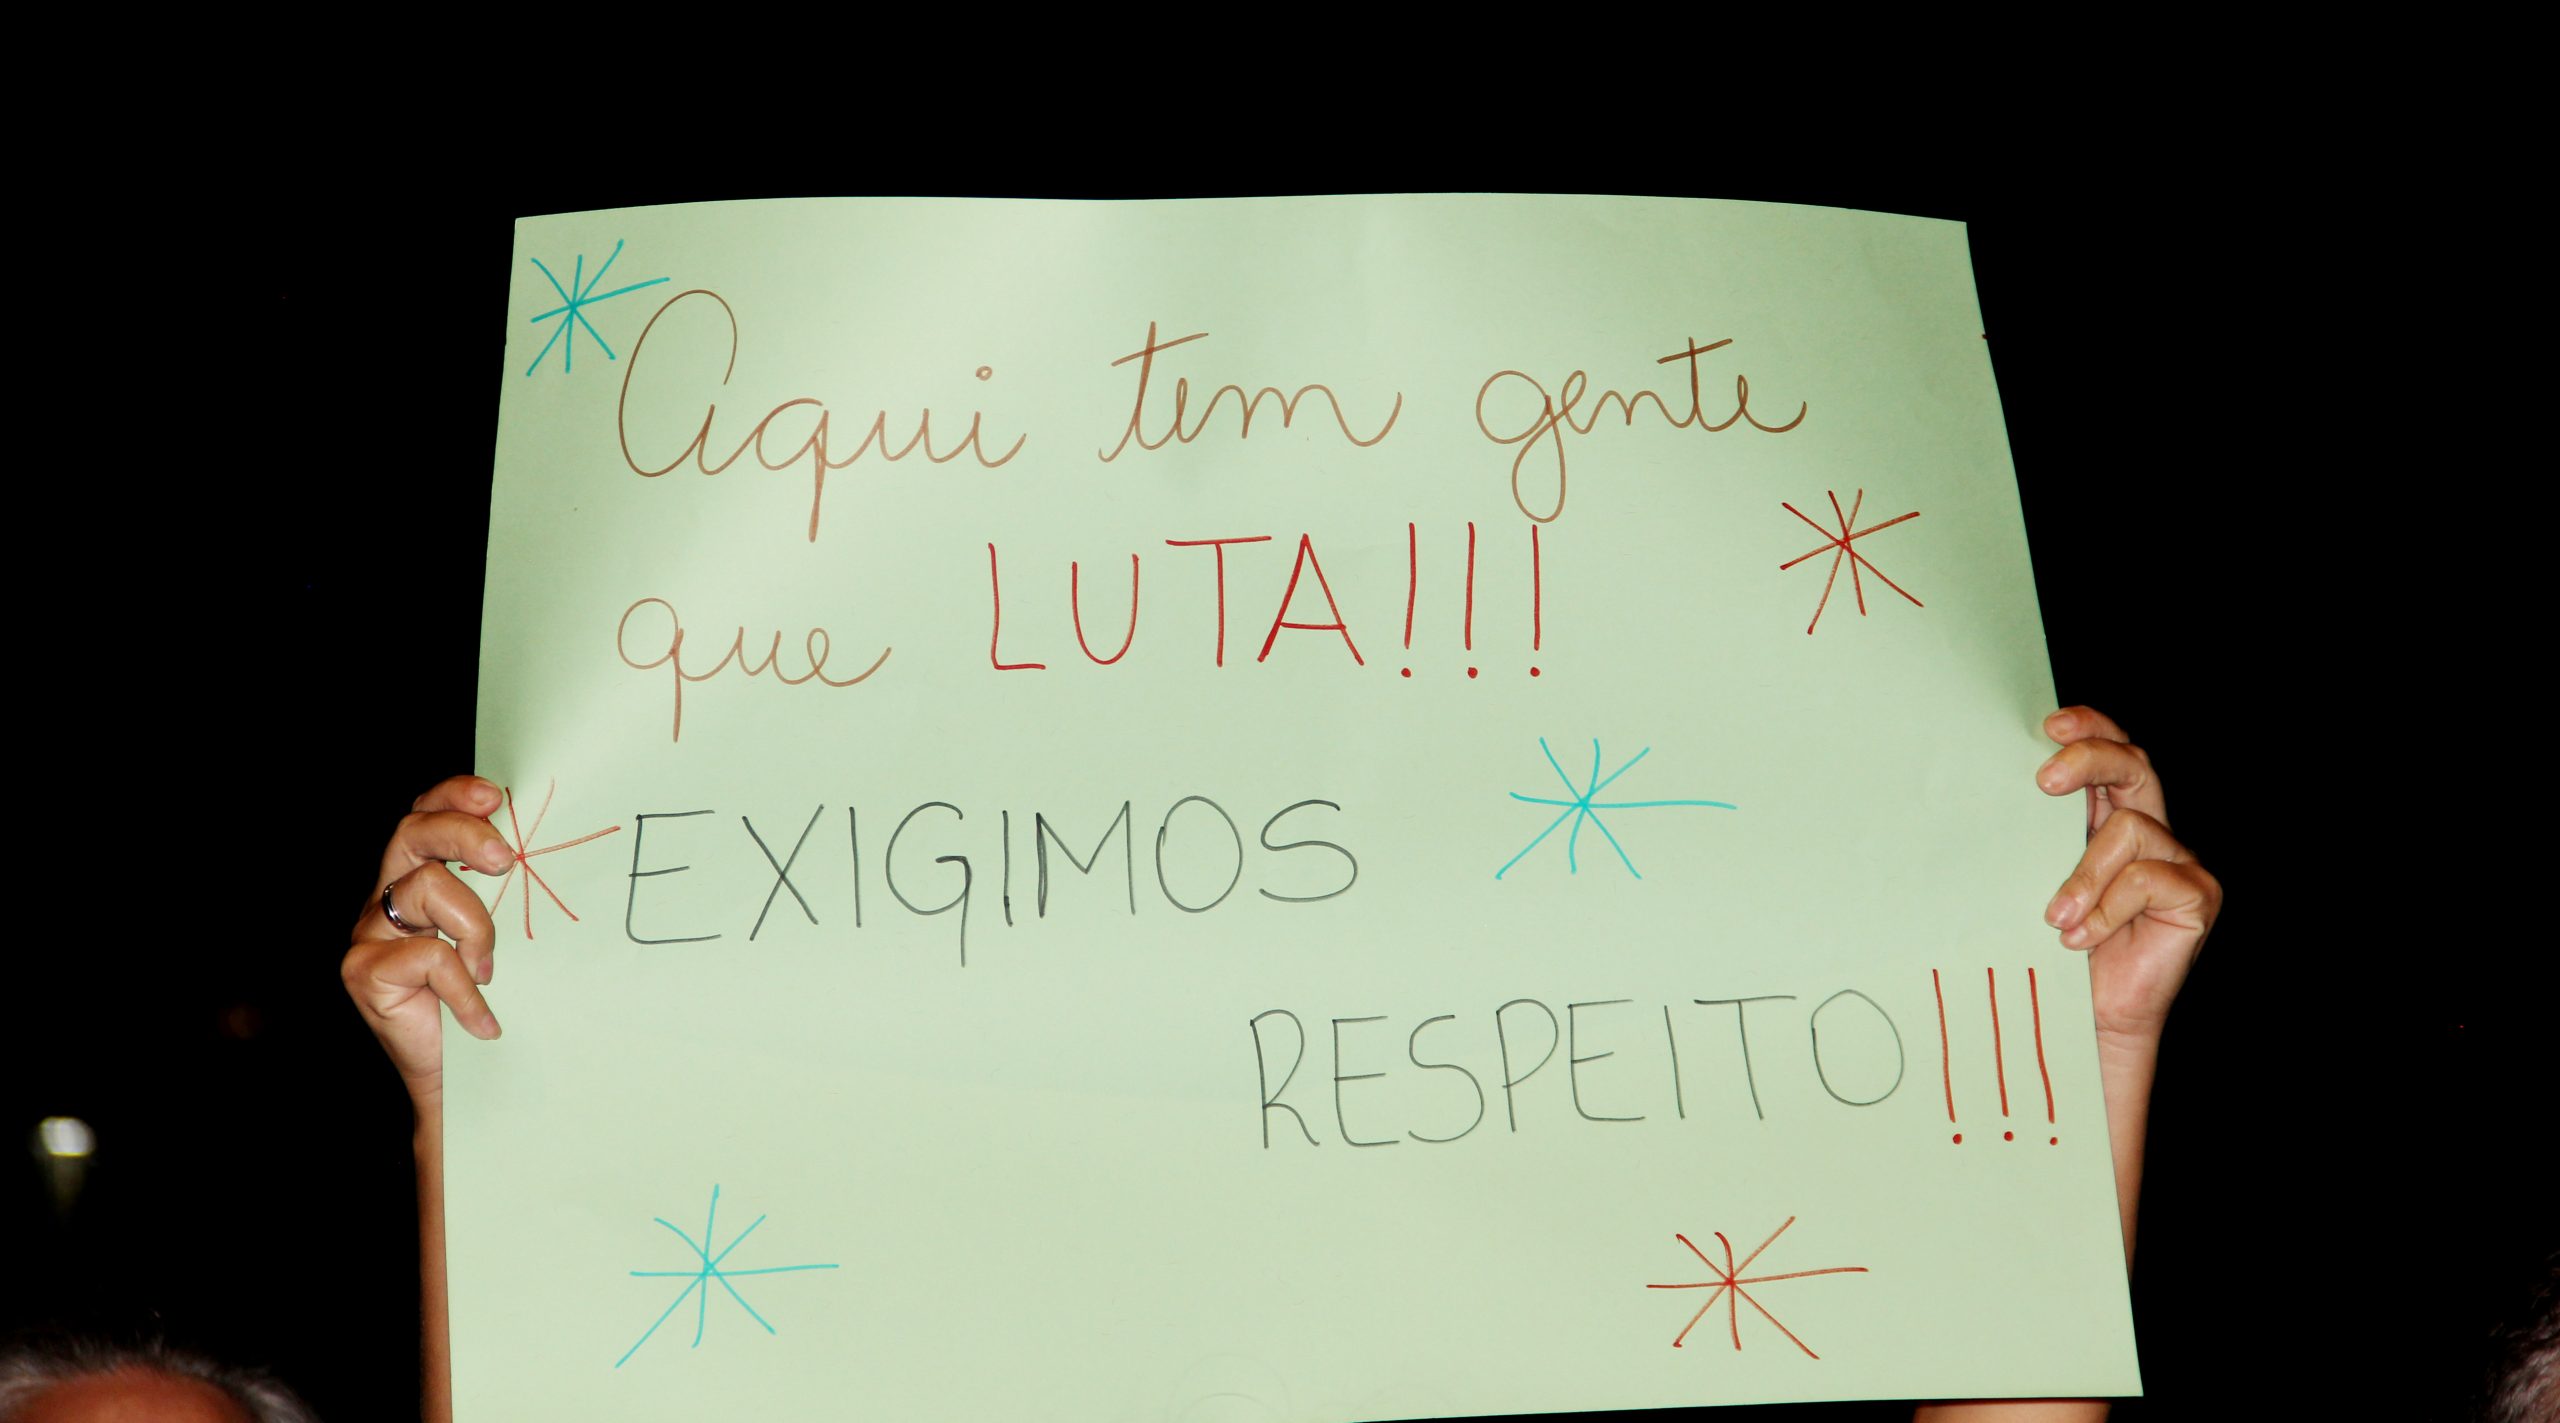 Aqui tem gente
que LUTA!!!
EXIGIMOS
RESPEITO!!!